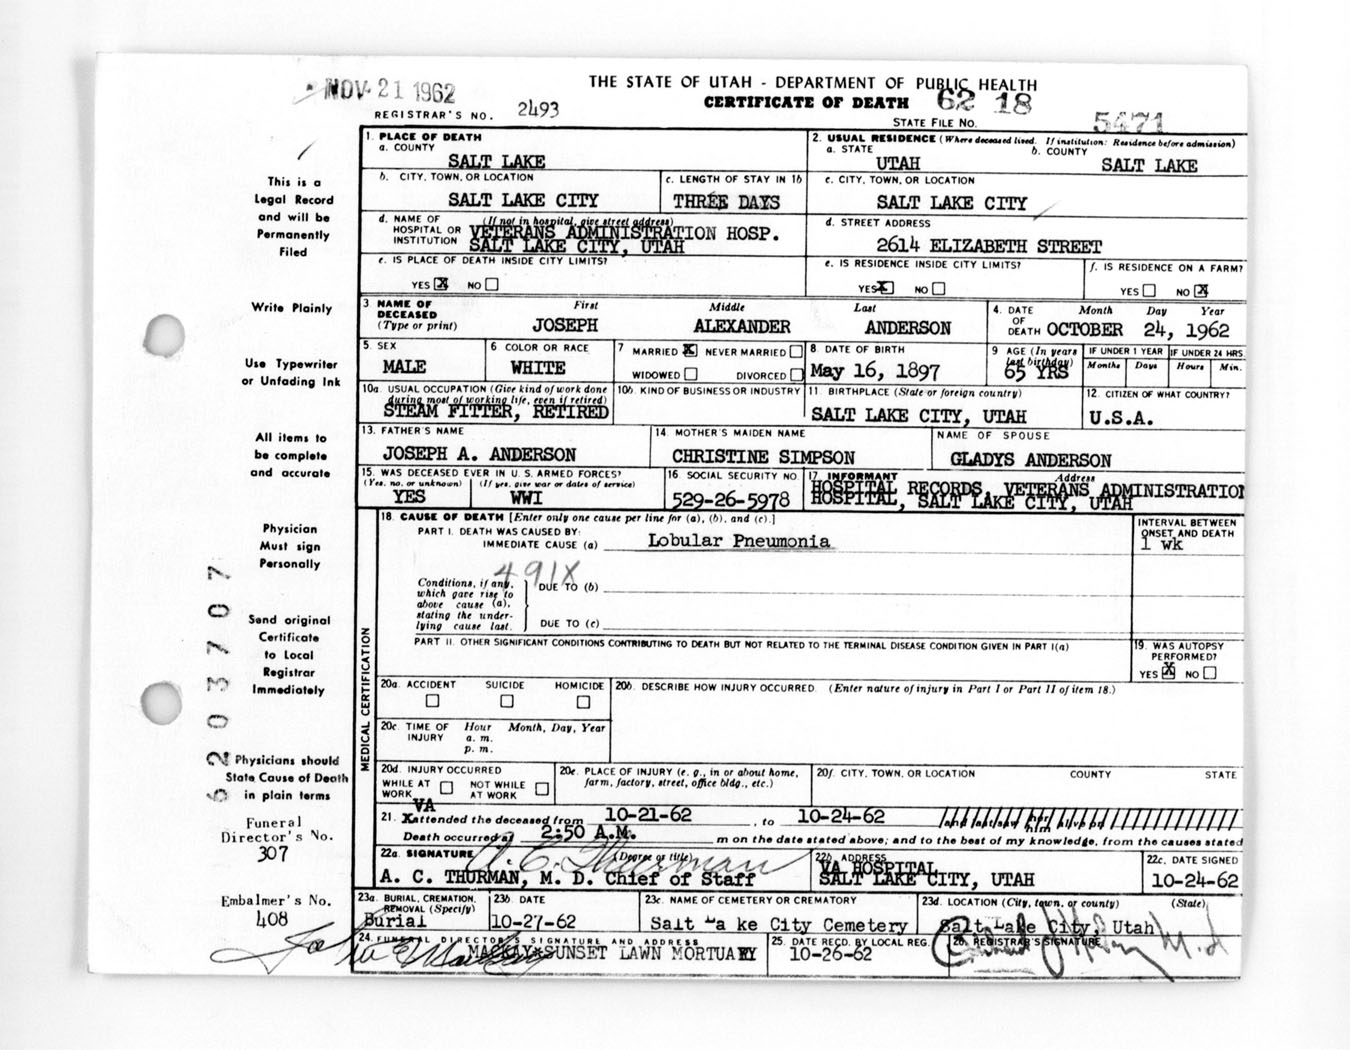 NOV 21 1962
THE STATE OF UTAH - DEPARTMENT OF PUBLIC HEALTH
CERTIFICATE OF DEATH 62 18
REGISTRAR'S NO. 2493
STATE FILE NO. 5471
This is a
Legal Record
and will be
Permanently
Filed
Write Plainly
Use Typewriter
or Unfading Ink
All items to
be complete
and accurate
Physician
Must sign
Personally
Send original
Certificate
to Local
Registrar
Immediately
Physicians should
State Cause of Death
in plain terms
Funeral
Director's No.
307
Embalmer's No.
408
6203707
1. PLACE OF DEATH
a. COUNTY
SALT LAKE
2. USUAL RESIDENCE (Where deceased lived. If institution: Residence before admission)
a. STATE
UTAH
b. COUNTY
SALT LAKE
b. CITY, TOWN, OR LOCATION
SALT LAKE CITY
c. LENGTH OF STAY IN 1b
THREE DAYS
c. CITY, TOWN, OR LOCATION
SALT LAKE CITY
d. NAME OF HOSPITAL OR INSTITUTION (If not in hospital, give street address)
VETERANS ADMINISTRATION HOSP.
SALT LAKE CITY, UTAH
d. STREET ADDRESS
2614 ELIZABETH STREET
e. IS PLACE OF DEATH INSIDE CITY LIMITS?
YES X NO
e. IS RESIDENCE INSIDE CITY LIMITS?
YES X NO
f. IS RESIDENCE ON A FARM?
YES NO X
3 NAME OF DECEASED (Type or print)
First Middle Last
JOSEPH ALEXANDER ANDERSON
4. DATE OF DEATH
Month Day Year
OCTOBER 24, 1962
5. SEX
MALE
6 COLOR OR RACE
WHITE
7 MARRIED X NEVER MARRIED
WIDOWED DIVORCED
8 DATE OF BIRTH
May 16, 1897
9 AGE (In years last birthday)
65 YRS
IF UNDER 1 YEAR
Months Days
IF UNDER 24 HRS.
Hours Min.
10a USUAL OCCUPATION (Give kind of work done during most of working life, even if retired)
STEAM FITTER, RETIRED
10b. KIND OF BUSINESS OR INDUSTRY
11 BIRTHPLACE (State or foreign country)
SALT LAKE CITY, UTAH
12. CITIZEN OF WHAT COUNTRY?
U.S.A.
13. FATHER'S NAME
JOSEPH A. ANDERSON
14 MOTHER'S MAIDEN NAME
CHRISTINE SIMPSON
NAME OF SPOUSE
GLADYS ANDERSON
15. WAS DECEASED EVER IN U. S. ARMED FORCES?
(Yes, no, or unknown) (If yes, give war or dates of service)
YES WWI
16 SOCIAL SECURITY NO.
529-26-5978
17 INFORMANT Address
HOSPITAL RECORDS, VETERANS ADMINISTRATION
HOSPITAL, SALT LAKE CITY, UTAH
MEDICAL CERTIFICATION
18. CAUSE OF DEATH [Enter only one cause per line for (a), (b), and (c).]
PART I. DEATH WAS CAUSED BY:
IMMEDIATE CAUSE (a) Lobular Pneumonia
INTERVAL BETWEEN
ONSET AND DEATH
1 wk
491X
Conditions, if any,
which gave rise to
above cause (a),
stating the under-
lying cause last.
DUE TO (b)
DUE TO (c)
PART II. OTHER SIGNIFICANT CONDITIONS CONTRIBUTING TO DEATH BUT NOT RELATED TO THE TERMINAL DISEASE CONDITION GIVEN IN PART I(a)
19. WAS AUTOPSY
PERFORMED?
YES X NO
20a. ACCIDENT SUICIDE HOMICIDE
20b. DESCRIBE HOW INJURY OCCURRED. (Enter nature of injury in Part I or Part II of item 18.)
20c. TIME OF INJURY
Hour Month, Day, Year
a. m.
p. m.
20d. INJURY OCCURRED
WHILE AT WORK NOT WHILE AT WORK
20e. PLACE OF INJURY (e. g., in or about home,
farm, factory, street, office bldg., etc.)
20f. CITY, TOWN, OR LOCATION COUNTY STATE
VA
21. X attended the deceased from 10-21-62, to 10-24-62 and last saw her him alive on
Death occurred at 2:50 A.M. m on the date stated above; and to the best of my knowledge, from the causes stated
22a. SIGNATURE (Degree or title)
A. C. Thurman
A. C. THURMAN, M. D. Chief of Staff
22b. ADDRESS
VA HOSPITAL
SALT LAKE CITY, UTAH
22c. DATE SIGNED
10-24-62
23a. BURIAL, CREMATION,
REMOVAL (Specify)
Burial
23b. DATE
10-27-62
23c. NAME OF CEMETERY OR CREMATORY
Salt La ke City Cemetery
23d. LOCATION (City, town, or county) (State)
Salt Lake City, Utah
24. FUNERAL DIRECTOR'S SIGNATURE AND ADDRESS
MACKAY*SUNSET LAWN MORTUARY
25. DATE RECD. BY LOCAL REG.
10-26-62
26. REGISTRAR'S SIGNATURE
M.d